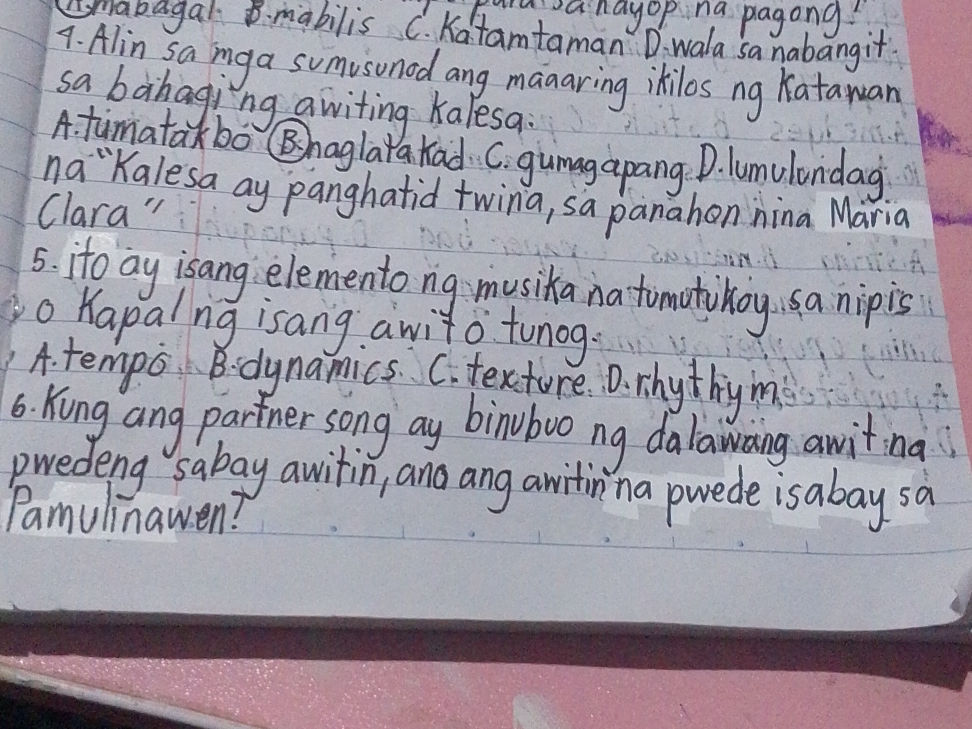 A. mabagal B. mabilis C. Katamtaman D. wala sa nabangit.
sa hayop na pagong?
4. Alin sa mga sumusunod ang maaaring ikilos ng Katawan
sa bahaging awiting Kalesa.
A. tumatakbo B. naglalakad C. gumagapang D. lumulundag
na "Kalesa ay panghatid twina, sa panahon nina Maria
Clara"
5. ito ay isang elemento ng musika na tumutukoy sa nipis
o Kapal ng isang awit o tunog.
A. tempo B. dynamics C. texture D. rhythym
6. Kung ang partner song ay binubuo ng dalawang awit na
pwedeng sabay awitin, ano ang awitin na pwede isabay sa
Pamulinawen?